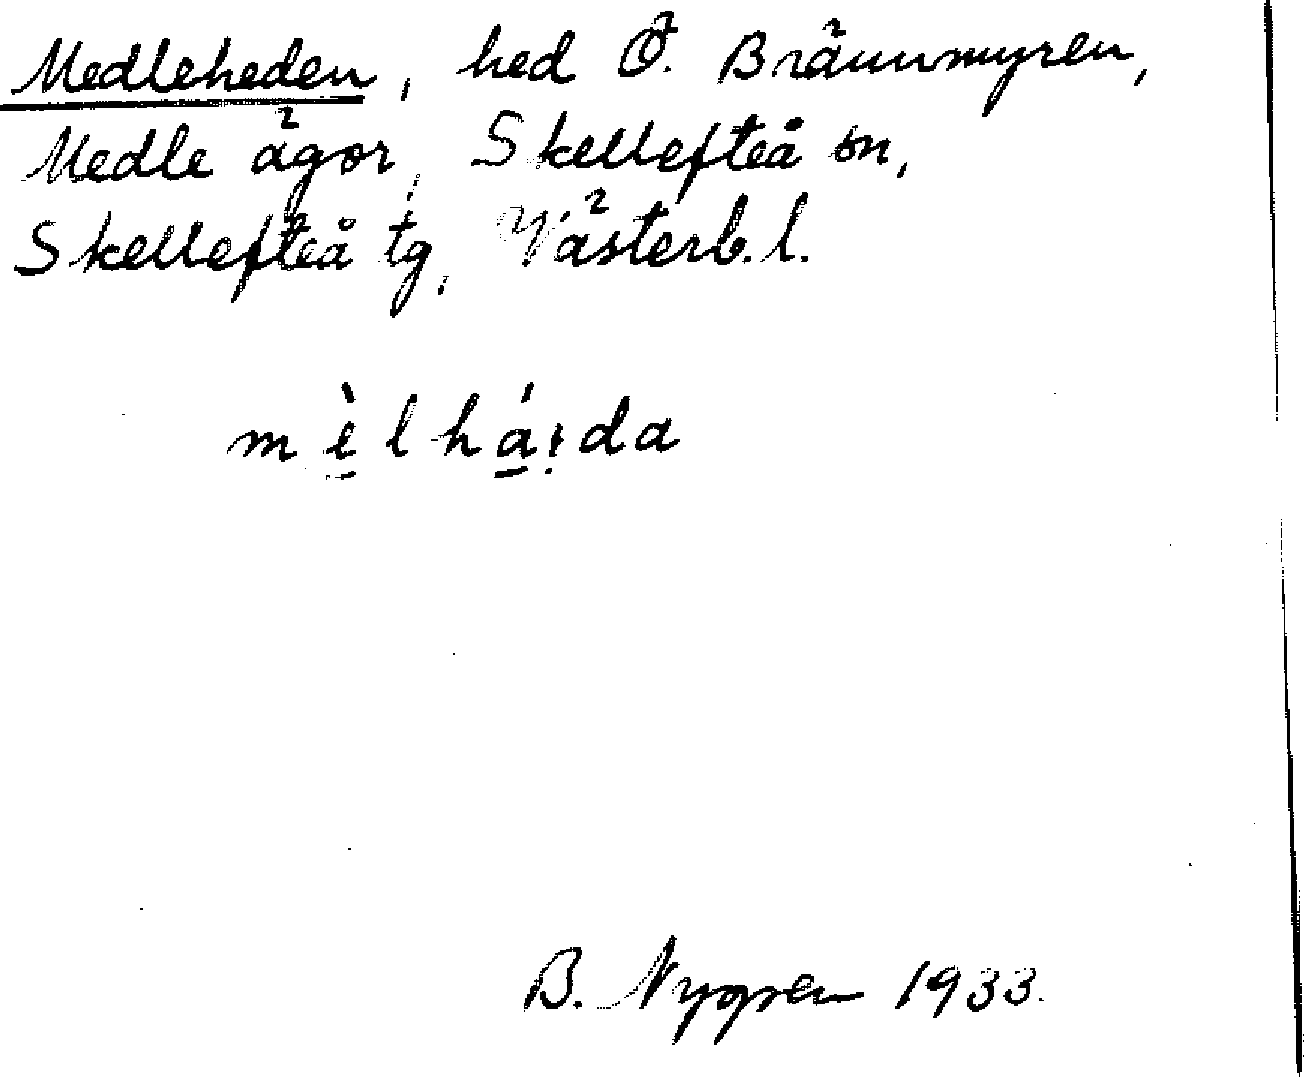 Medleheden, hed Ö. Brännmyren,
Medle ägor, Skellefteå sn,
Skellefteå tg, Västerb. l.
mè̱lhá̱i̥da
B. Nygren 1933.